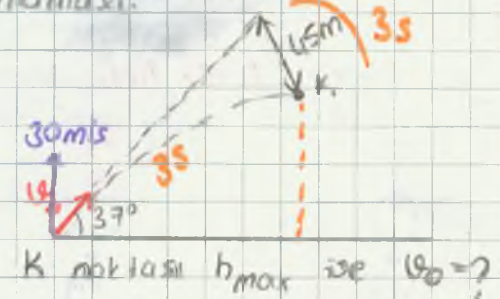 45m
3s
K
30m/s
3s
37°
K noktası hmax ise ϑ₀ = ?